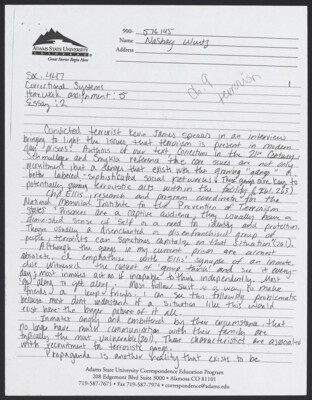 ADAMS STATE UNIVERSITY
COLORADO
Great Stories Begin Here
900- 576145
Name Nashay Wurtz
Address
Soc. 4647
Correctional Systems
Homework assignment: 5
Essay: 2
ch 9
terrorism
Convicted terrorist Kevin James spears in an interview
bringing to light the issues that terrorism is present in modern
day prisons. Authors of our text Correction in the 21st Century,
Schmalleger and Smykla reference the core issues are not only
recruitment but a danger that exists with the growing "gangs"
better labored sophisticated social networks. These gangs are key to
potentially growing terroristic acts within the facility
Chad Ellis, a research and program coordinator for the
National Memorial Institute to the Prevention of Terrorism
states "Prisoners are a captive audience, they usually have a
diminished sense of self or a need for identity and protection.
They're usually a disenchanted or disenfranchised group of
people, terrorists can sometimes capitalize on that situation
Although the gangs in my current prison are almost
absolete, I empathize with Ellis' synopsis of an inmate.
still withstand the concept of group therial and see it every
day; most inmates act as if incapable to think independently. Most
"go along to get along". Most follow suit is a way to make
friends / keep friends. I can see this following problematic
because most dont understand if a situation like this would
exist have the bigger picture of it all.
Inmates angry and embittered by their circumstance, that
no longer have much communication with their family are
typically the most vulnerable These characteristics are associated
with recruitment for terroristic gangs.
Propaganda is another quality that exists to be
Adams State University Correspondence Education Program
208 Edgemont Blvd Suite 3000 • Alamosa CO 81101
719-587-7671 • Fax 719-587-7974 • correspondence@adams.edu